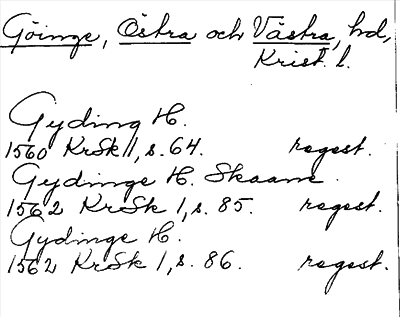 Göinge, Östra och Västra, hd,
Krist. l.
Gyding H.
1560 KrSk 1, s. 64. regest.
Gydinge H. Skaane.
1562 KrSk 1, s. 85. regest.
Gydinge H.
1562 KrSk 1, s. 86. regest.